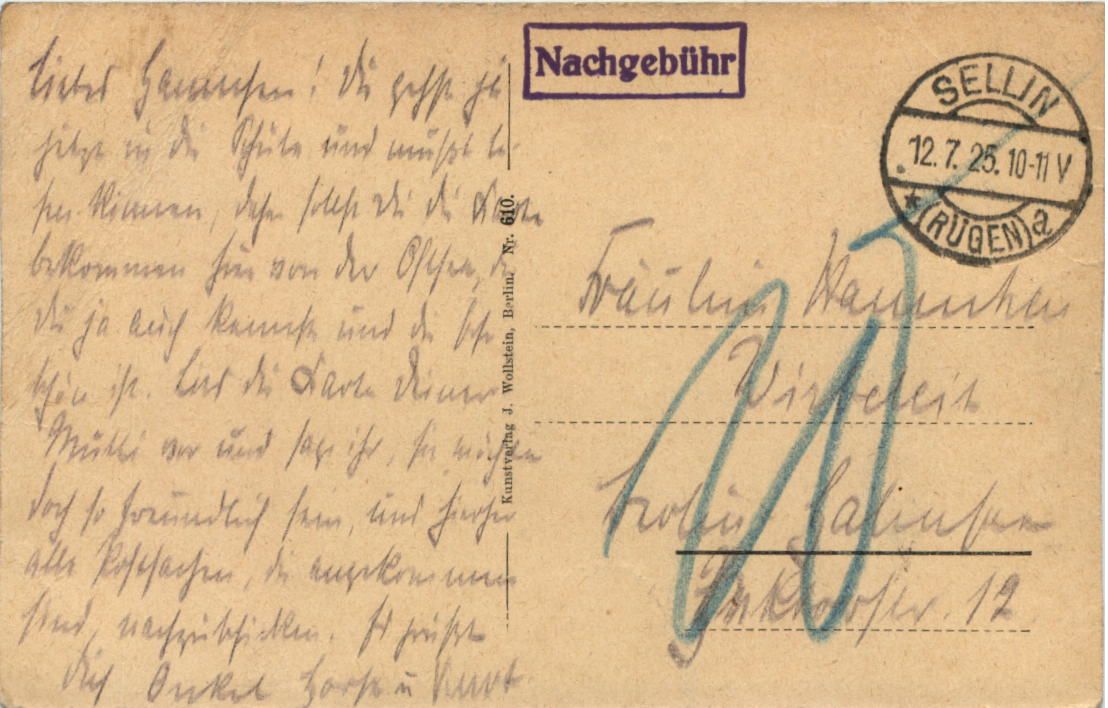 Liebes Hannchen! Du gehst ja
jetzt in die Schule und mußt le-
sen können, daher sollst Du die Karte
bekommen hier von der Ostsee, die
Du ja auch kennst und die sehr
schön ist. Lies die Karte Deiner
Mutti vor und sage ihr, sie möchte
doch so freundlich sein, und hierher
alle Postsachen, die angekommen
sind, nachzuschicken. Es grüßt
Dich Onkel Horst u Kurt
Kunstverlag J. Wollstein, Berlin. Nr. 610.
Nachgebühr
SELLIN
12.7.25.10-11V
* (RÜGEN) a
Fräulein Hannchen
Berlin Halensee
12